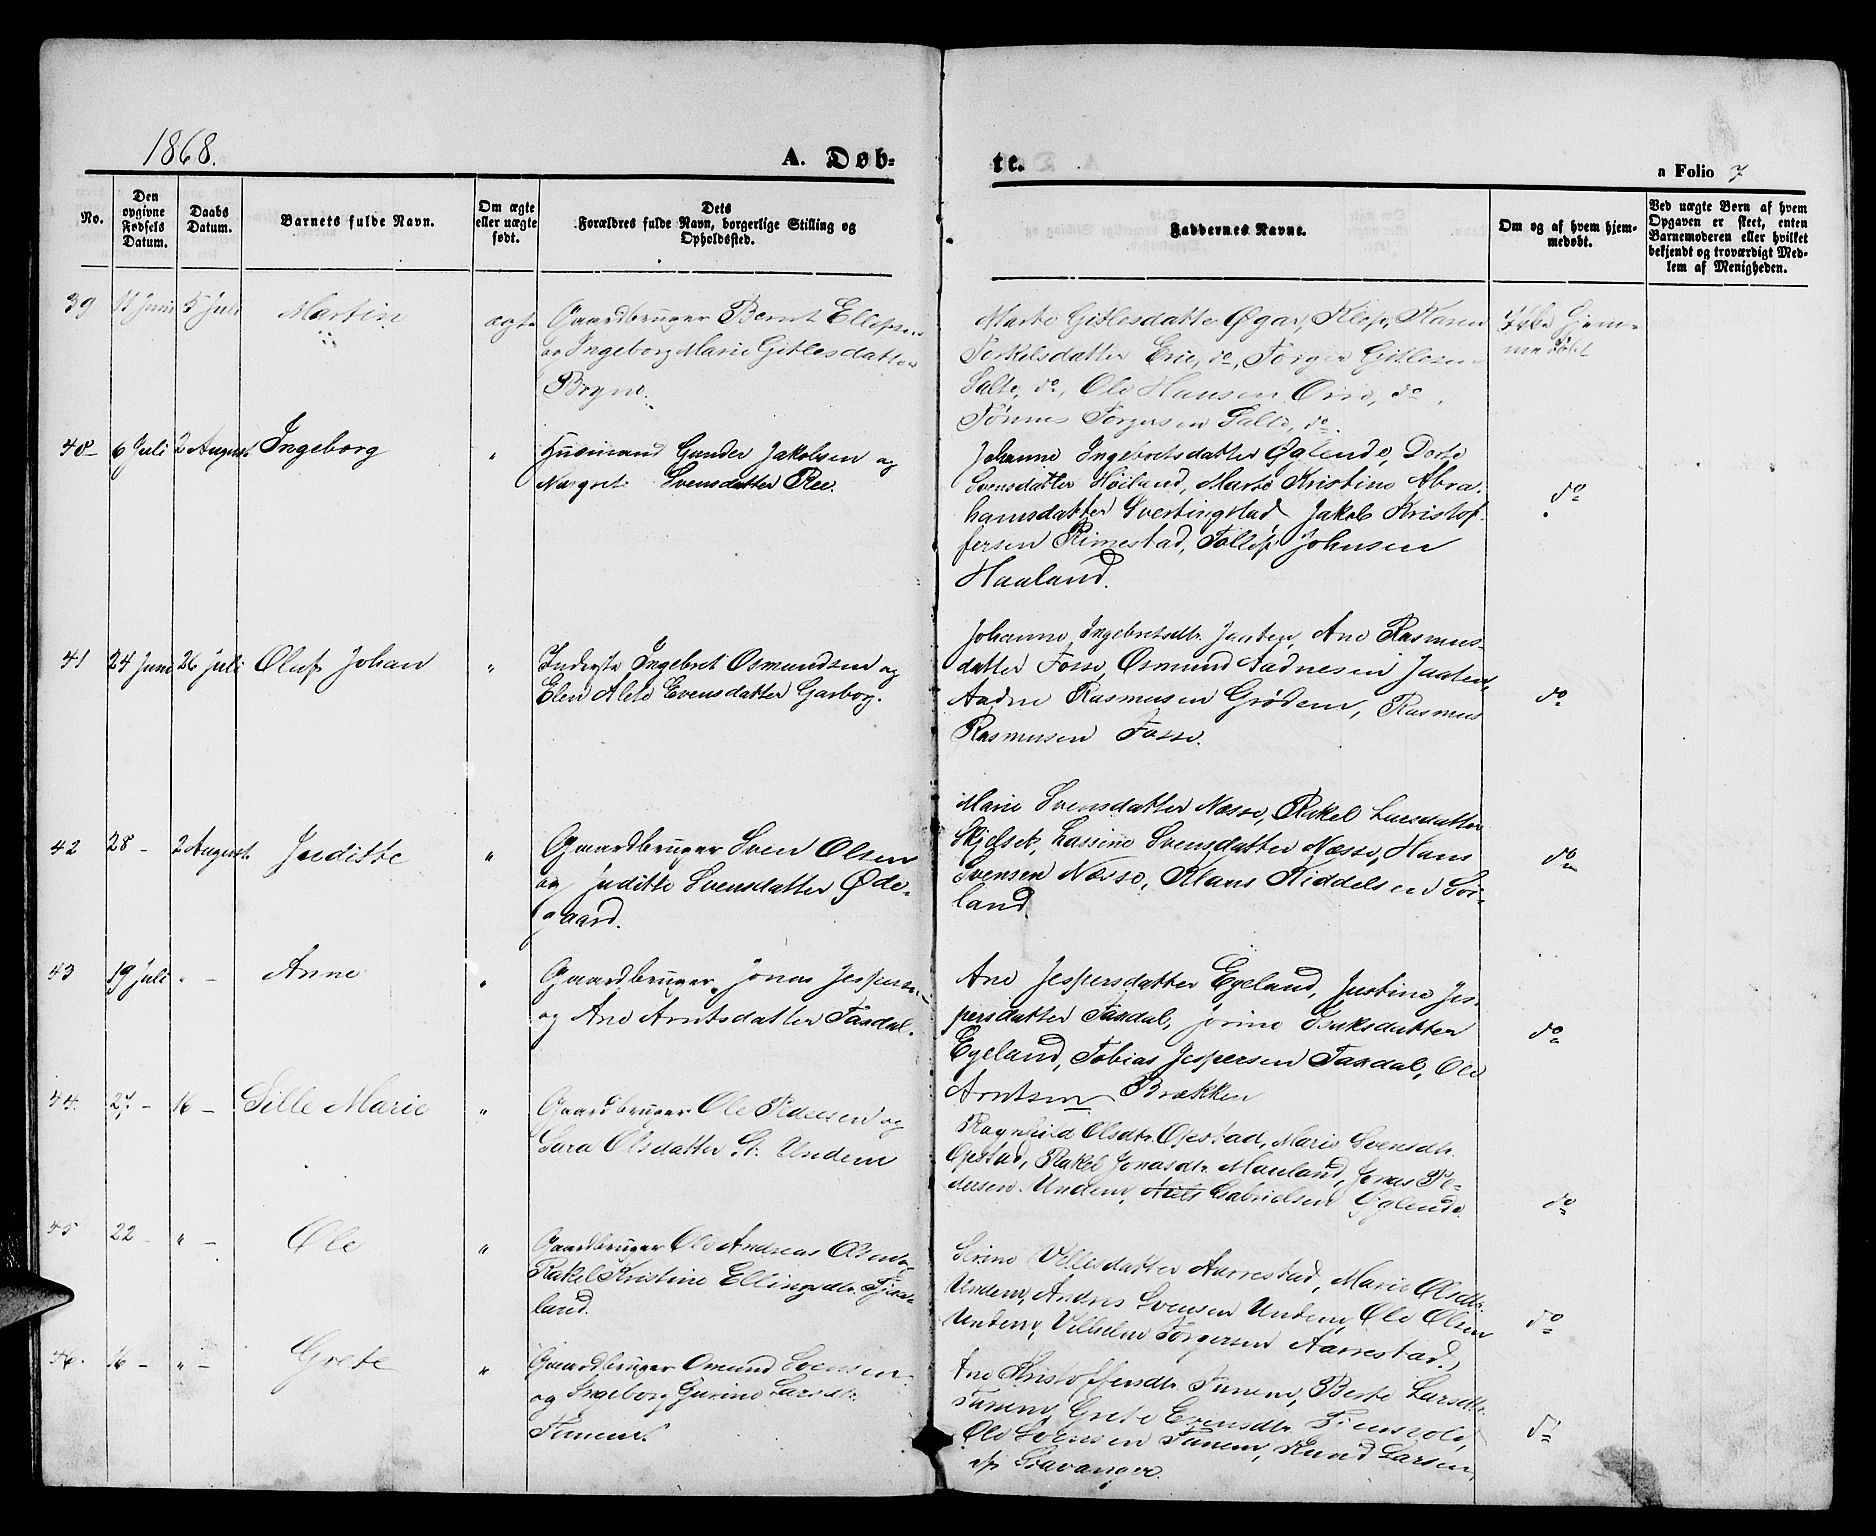 1868.
A. Døb-
te.
a Folio 7
No.
Den opgivne Fødsels Datum.
Daabs Datum.
Barnets fulde Navn.
Om ægte eller uægte født.
Dets Forældres fulde Navn, borgerlige Stilling og Opholdssted.
Faddernes Navne.
Om og af hvem hjem-medøbt.
Ved uægte Børn af hvem Opgaven er skeet, enten Barnemoderen eller hvilket bekjendt og troværdigt Med-lem af Menigheden.
39 11 Juni 5 Juli Martin ægte Gaardbruger Bernt Ellefsen
og Ingeborg Marie Gitlesdatter
Bryne.
Marte Gitlesdatter Øgar, Klep, Karen
Torkelsdatter Erie, do, Torger Gitlesen
Salte, do, Ole Hansen Orre, do,
Tønnes Torgersen Salte, do.
Ikke Hjem-
medøbt
40 6 Juli 2 August Ingeborg " Huusmand Gunder Jakobsen og
Margrete Svensdatter Ree.
Johanne Ingebretsdatter Øglende, Dorte
Svensdatter Høiland, Marte Kristine Abra-
hamsdatter Svertingstad, Jakob Kristof-
fersen Rimestad, Tollef Johnsen
Haaland.
do
41 24 Juni 26 Juli Oluf Johan " Inderste Ingebret Osmundsen og
Elen Alete Evensdatter Garborg.
Johanne Ingebretsdtr. Jaaten, Ane Rasmus-
datter Fosse, Osmund Aadnesen Jaaten,
Aadne Rasmussen Grødem, Rasmus
Rasmussen Fosse.
do
42 28 - 2 August Juditte " Gaardbruger Sven Olsen
og Juditte Svensdatter Øde-
gaard.
Marie Svensdatter Næsse, Rakel Larsdatter
Skjelsek, Lassine Svensdatter Næsse, Hans
Svensen Næsse, Klaus Riddelsen Sør-
land.
do
43 19 Juli " - Anne " Gaardbruger Jonas Jespersen
og Ane Arntsdatter Taxdal.
Ane Jespersdatter Egeland, Justine Jes-
persdatter Taxdal, Jorine Isaksdatter
Egeland, Tobias Jespersen Taxdal, Ole
Arntsen Brækken
do
44. 27. - 16 - Sille Marie " Gaardbruger Ole Pedersen og
Sara Olsdatter St. Undem
Ragnhild Olsdtr. Opstad, Marie Svensdtr.
Opstad, Rakel Jonasdtr. Mauland, Jonas Pe-
dersen Undem, Niels Gabrielsen Øglende.
do
45 22 - " - Ole " Gaardbruger Ole Andreas Olsen og
Rakel Kristine Ellingsdtr.
land.
Serine Villesdatter Aarrestad, Marie Olsdtr.
Undem, Andres Svensen Undem, Ole Olsen
Undem, Vilhelm Torgersen Aarrestad.
do
46. 16 - " - Grete " Gaardbruger Omund Svensen
og Ingeborg Gurine Larsdtr.
Tunem.
Ane Kristoffersdtr. Tunem, Berte Larsdtr.
Tunem, Grete Evensdtr.
Ole Svensen Tunem, Knud Larsen,
af Stavanger.
do